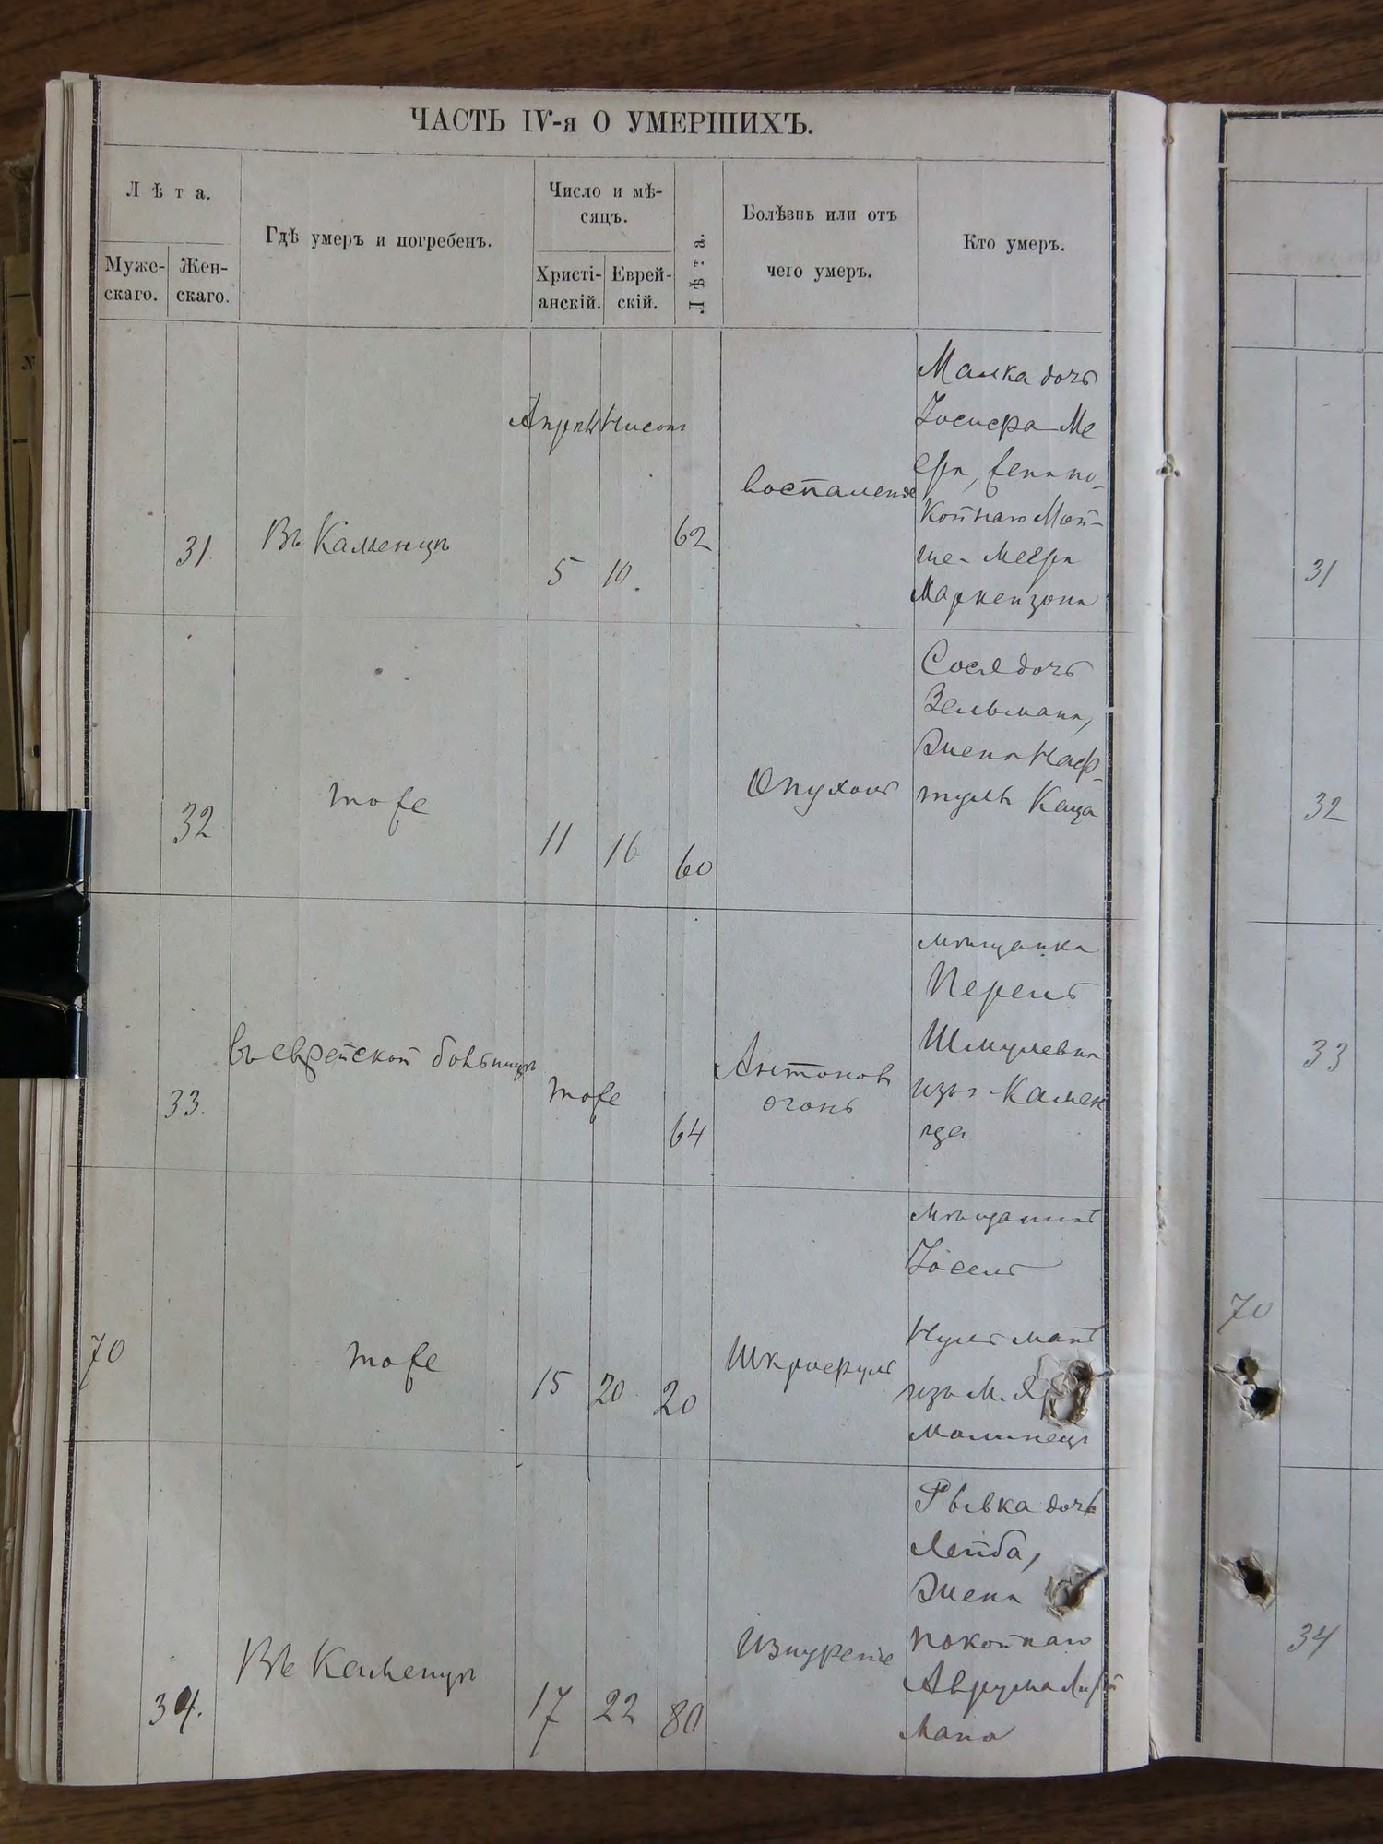 ЧАСТЬ IV-я О УМЕРШИХЪ.
Лѣта.
Муже-
скаго.
Жен-
скаго.
Гдѣ умеръ и погребенъ.
Число и мѣ-
сяцъ.
Христі-
анскій.
Еврей-
скій.
Лѣта.
Болѣзнь или отъ
чего умеръ.
Кто умеръ.
31
Въ Каменцѣ
Апрѣль
5
Нисонъ
10.
62
Воспаленіе
Малка дочь
Іосифа-Ме
ера, жена по-
койнаго Мой-
ше-Меера
Маркензона
32
тоже
11
16
60
Опухоль
Сося дочь
Зельмана,
жена Наф-
тулъ Каца
33.
въ еврейской больницѣ
тоже
64
Антоновъ
огонь
мѣщанка
Перель
Шмулевна
изъ Камен
ца
70
тоже
15
20
20
Шкрофулъ
мѣщанинъ
Іосель
изъ М.
34.
Въ Каменцѣ
17
22
80
Изнуреніе
Рывка дочь
Лейба,
жена
покойнаго
Аврума
мана
31
32
33
70
34